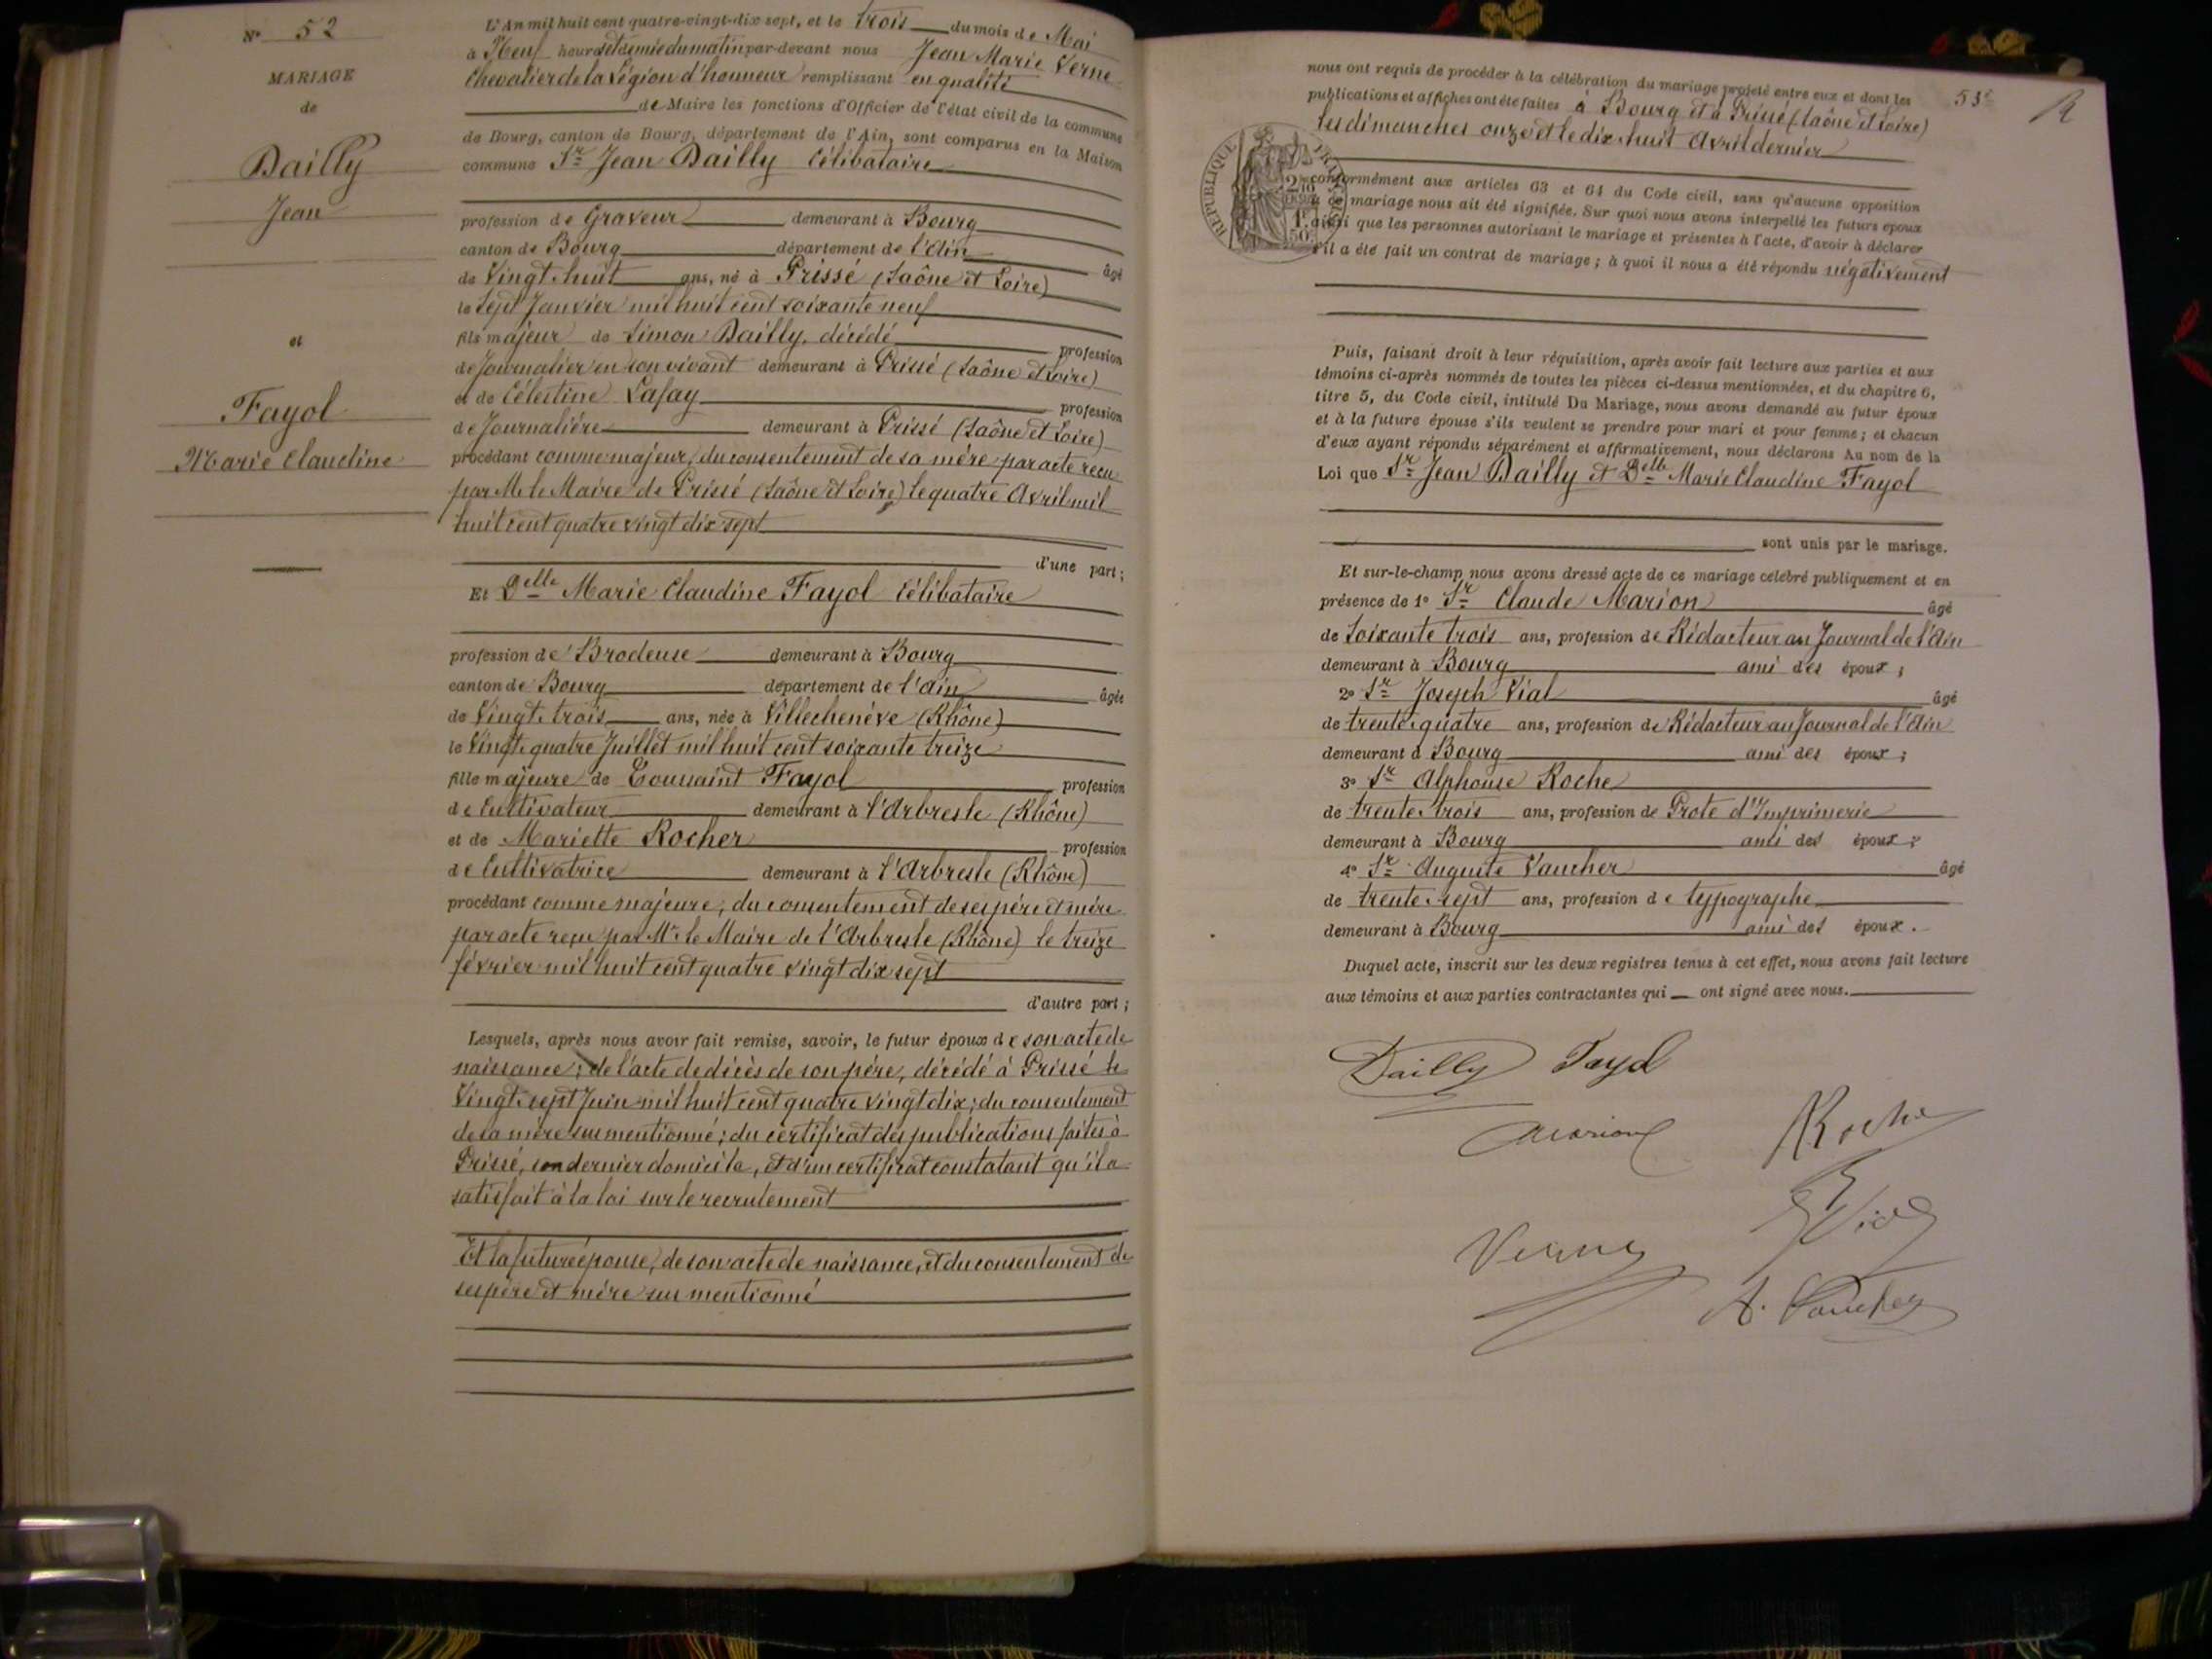 N° 52
MARIAGE
de
Dailly
Jean
et
Fayol
Marie Claudine
L'An mil huit cent quatre-vingt-dix sept, et le trois du mois de Mai
à Neuf heures et demie du matin par-devant nous Jean Marie Verne
Chevalier de la Légion d'honneur remplissant en qualité
de Maire les fonctions d'Officier de l'état civil de la commune
de Bourg, canton de Bourg, département de l'Ain, sont comparus en la Maison
commune Sr Jean Dailly Célibataire
profession de Graveur demeurant à Bourg
canton de Bourg département de l'Ain âgé
de Vingt-huit ans, né à Prissé (Saône et Loire)
le Sept Janvier mil huit cent soixante neuf
fils majeur de Simon Dailly, décédé profession
de Journalier en son vivant demeurant à Prissé (Saône et Loire)
et de Célestine Lafay profession
de Journalière demeurant à Prissé (Saône et Loire)
procédant comme majeur, du consentement de sa mère par acte reçu
par M. le Maire de Prissé (Saône et Loire) le quatre Avril mil
huit cent quatre vingt dix sept
d'une part;
Et Delle Marie Claudine Fayol Célibataire
profession de Brodeuse demeurant à Bourg
canton de Bourg département de l'Ain âgée
de Vingt-trois ans, née à Villechenève (Rhône)
le Vingt-quatre Juillet mil huit cent soixante treize
fille majeure de Toussaint Fayol profession
de Cultivateur demeurant à l'Arbresle (Rhône)
et de Mariette Rocher profession
de Cultivatrice demeurant à l'Arbresle (Rhône)
procédant comme majeure, du consentement de ses père et mère
par acte reçu par Mr le Maire de l'Arbresle (Rhône) le treize
février mil huit cent quatre vingt dix sept
d'autre part;
Lesquels, après nous avoir fait remise, savoir, le futur époux de son acte de
naissance; de l'acte de décès de son père, décédé à Prissé le
Vingt-sept Juin mil huit cent quatre vingt dix; du consentement
de sa mère sus mentionné; du certificat des publications faites à
Prissé, son dernier domicile, et d'un certificat constatant qu'il a
satisfait à la loi sur le recrutement
Et la future épouse, de son acte de naissance, et du consentement de
ses père et mère sus mentionné
nous ont requis de procéder à la célébration du mariage projeté entre eux et dont les
publications et affiches ont été faites à Bourg et à Prissé (Saône et Loire)
les dimanches onze et le dix-huit Avril dernier
conformément aux articles 63 et 64 du Code civil, sans qu'aucune opposition
à ce mariage nous ait été signifiée. Sur quoi nous avons interpellé les futurs époux
ainsi que les personnes autorisant le mariage et présentes à l'acte, d'avoir à déclarer
s'il a été fait un contrat de mariage; à quoi il nous a été répondu négativement
REPUBLIQUE FRANÇAISE
Puis, faisant droit à leur réquisition, après avoir fait lecture aux parties et aux
témoins ci-après nommés de toutes les pièces ci-dessus mentionnées, et du chapitre 6,
titre 5, du Code civil, intitulé Du Mariage, nous avons demandé au futur époux
et à la future épouse s'ils veulent se prendre pour mari et pour femme; et chacun
d'eux ayant répondu séparément et affirmativement, nous déclarons Au nom de la
Loi que Sr Jean Dailly et Delle Marie Claudine Fayol
sont unis par le mariage.
Et sur-le-champ nous avons dressé acte de ce mariage célébré publiquement et en
présence de 1° Sr Claude Marion âgé
de Soixante trois ans, profession de Rédacteur au Journal de l'Ain
demeurant à Bourg ami des époux;
2° Sr Joseph Vial âgé
de trente-quatre ans, profession de Rédacteur au Journal de l'Ain
demeurant à Bourg ami des époux;
3° Sr Alphonse Roche
de trente-trois ans, profession de Prote d'Imprimerie
demeurant à Bourg ami des époux;
4° Sr Auguste Vaucher âgé
de trente-sept ans, profession de typographe
demeurant à Bourg ami des époux.
Duquel acte, inscrit sur les deux registres tenus à cet effet, nous avons fait lecture
aux témoins et aux parties contractantes qui ont signé avec nous.
Dailly Fayol
Marion Roche
Verne Vial
A. Vaucher